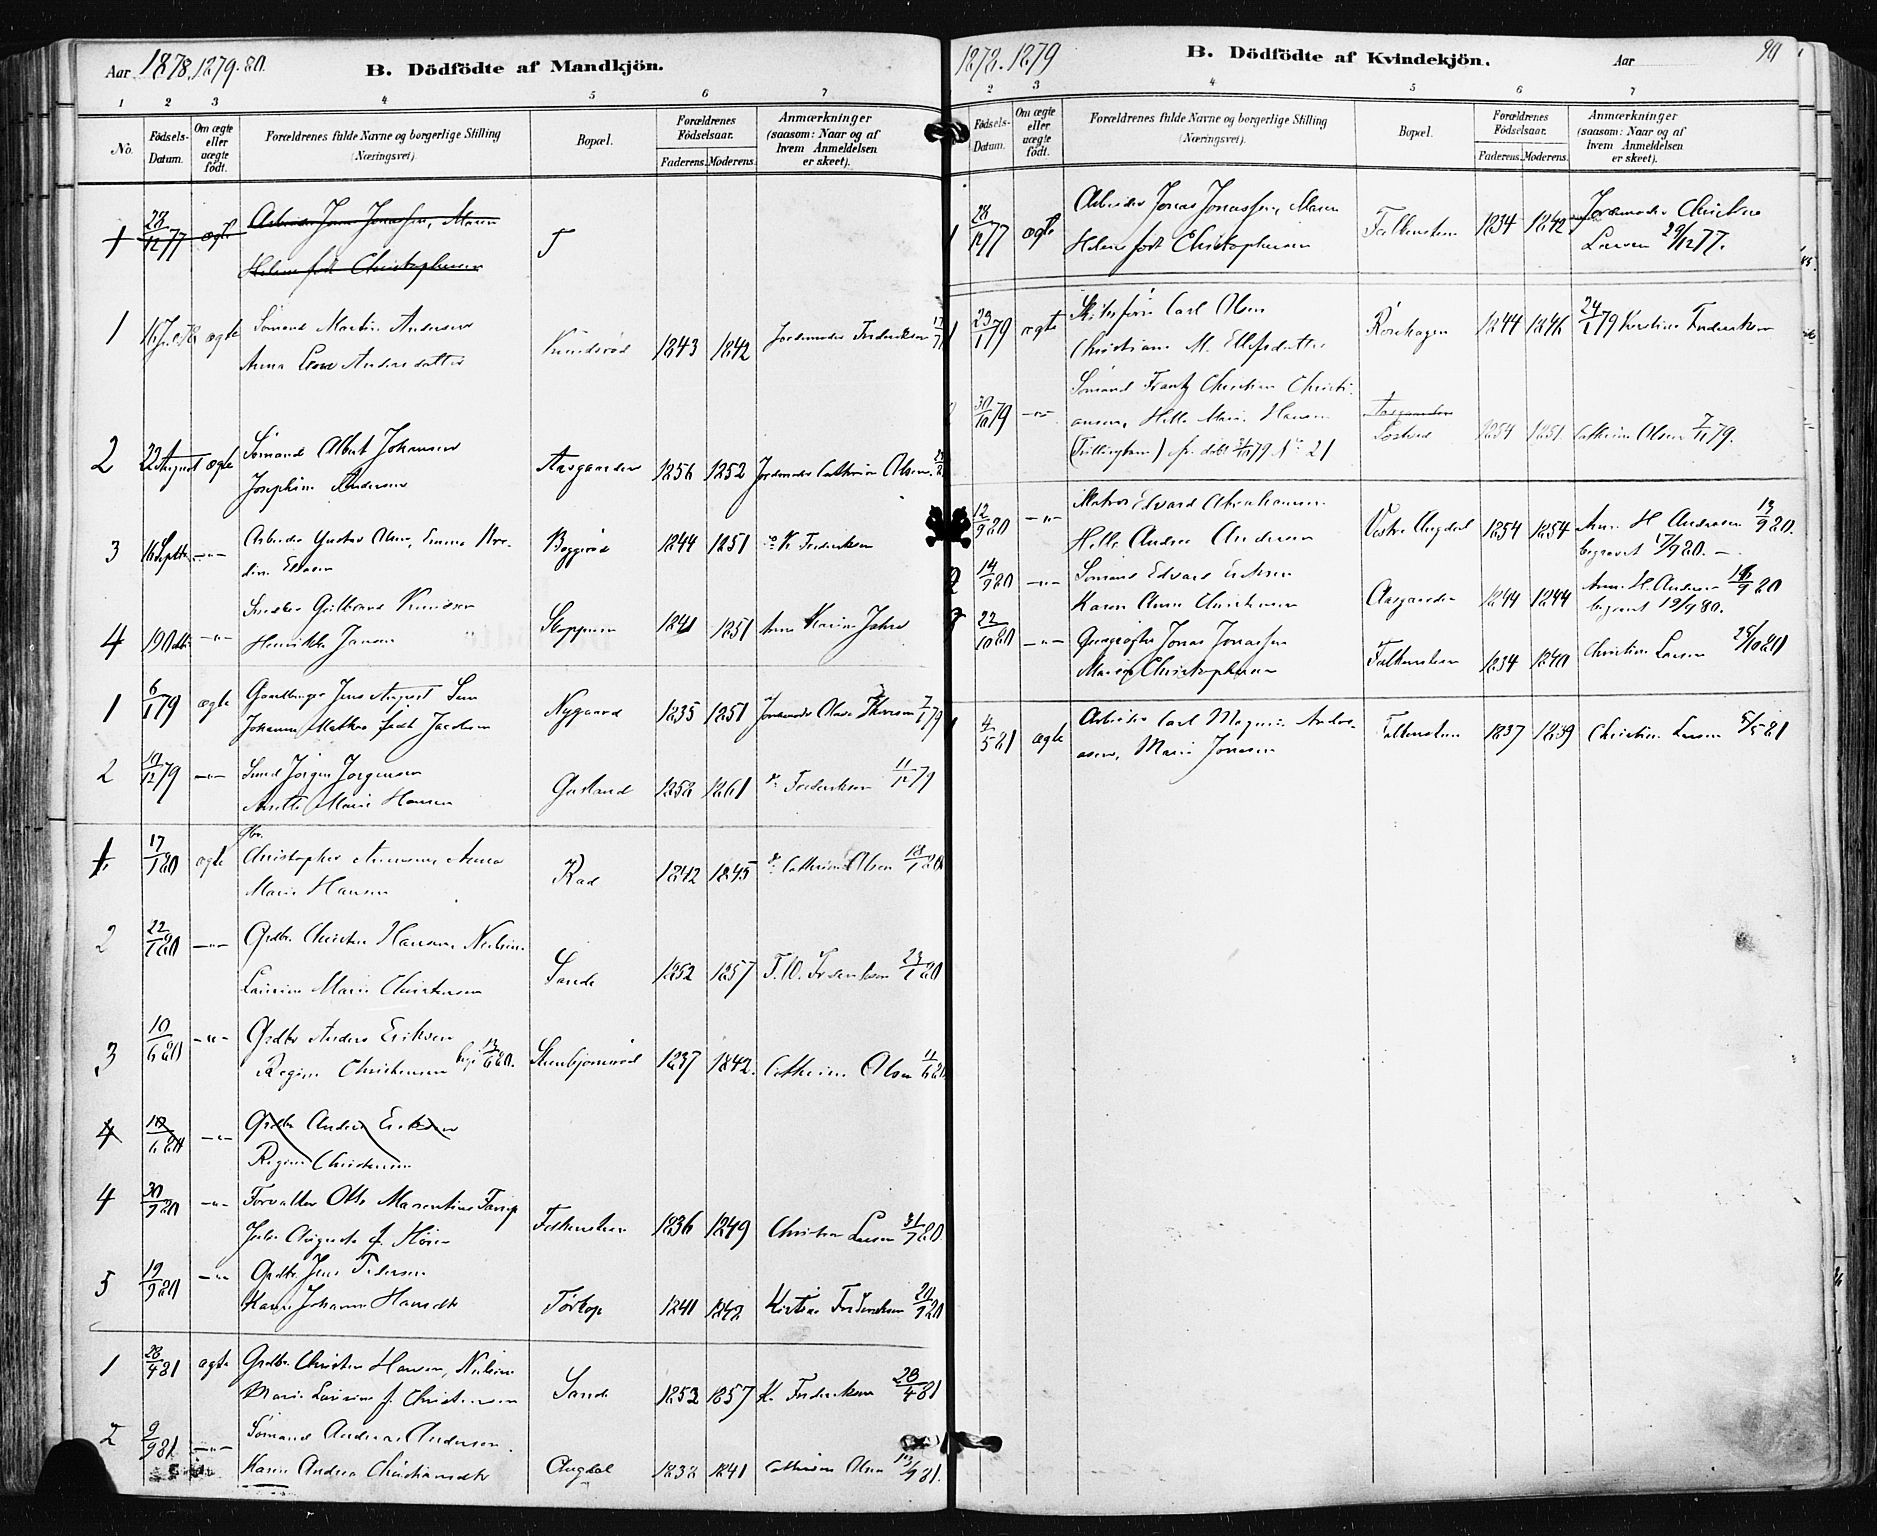 Aar 1878. 1879. 80. B. Dödfödte af Mandkjön.
1 2 3 4 5 6 7
No. Födsels-Datum. Om ægte eller uægte födt. Forældrenes fulde Navne og borgerlige Stilling (Næringsvei). Bopæl. Forældrenes Födselsaar. Faderens. Moderens. Anmærkninger (saasom: Naar og af hvem Anmeldelsen er skeet).
1 28/12 77 ægte Arbeider Jonas Jonassen, Maren
Helene født Christophersen F
1 16 Juli 78 ægte Sømand Martin Andersen
Anna Andersdatter 1843 1842 Jordemoder Frederiksen
2 22 August ægte Sømand Albert Johansen
Josephine Andersen Aasgaarden 1856 1852 Jordemoder Cathrine Olsen
3 16 Septbr. -"- Arbeider Gustav Olsen, Emma
Boggerød 1844 1851 K. Frederiksen
4 19 Octbr. -"- Gulbrand Knudsen
Henrikke Jansen 1841 1851 Anne Karine
1 6/1 79 ægte Gaardbruger Jens August
Johanne Mathea født Jacobsen Nygaard 1835 1851 Jordemoder Olava Iversen 7/1 79
2 10/12 79 -"- Smed Jørgen Jørgensen
Anette Marie Hansen 1852 1861 Frederiksen 11/12 79
1 17/1 80 ægte Gbr.
Christopher Anna
Marie Hansen Rød 1842 1845 Cathrine Olsen 18/1 80
2 22/1 80 -"- Grdbr. Christen Hansen
Laurine Marie Christensen Sande 1852 1857 Frederiksen 23/1 80
3 10/6 80 -"- Grdbr Anders Eriksen
Regine Christensen begr. 13/6 80. Stenbjørnrød 1837 1842. Cathrine Olsen 11/6 80
4 10/6 80 -"- Grdbr Anders Eriksen
Regine Christensen
4 30/7 80 -"- Forvalter Otto Marentius
Julie Augusta f. Falkensten 1836 1849 Christine Larsen 31/7 80.
5 19/9 80 -"- Grdbr. Jens Pedersen
Karen Johanne Hansdtr Tørkop 1841 1842 Kirstine Frederiksen 20/9 80
1 28/4 81 ægte Grdbr. Christen Hansen,
Marie Laurine f. Christensen Sande 1853 1857 K. Frederiksen 28/4 81
2 9/9 81 -"- Sømand Andreas Andersen.
Karen Andrea Christiansdtr Augdal 1832 1841 Cathrine Olsen 10/9 81.
1878. 1879 B. Dödfödte af Kvindekjön. Aar 90
2 3 4 5 6 7
Födsels-Datum. Om ægte eller uægte födt. Forældrenes fulde Navne og borgerlige Stilling (Næringsvei). Bopæl. Forældrenes Födselsaar. Faderens. Moderens. Anmærkninger (saasom: Naar og af hvem Anmeldelsen er skeet).
1 28/12 77 ægte Arbeider Jonas Jonassen, Maren
Helene født Christophersen Falkensten 1834 1842 Jordemoder Christine
Larsen 29/12 77.
1 23/1 79 ægte Carl Olsen
Christiane M. Ellefsdatter Rørehagen 1844 1846 24/1 79 Kirstine Frederiksen
2 30/10 79 -"- Sømand Frantz Christian Christi-
ansen, Helle Marie Hansen
(Tvillingbarn) 79 No 21 Aasgaarden
1854 1851 Cathrine Olsen 7/11 79.
12/9 80 -"- Matros Edvard Abrahamsen
Helle Andrea Andersen Vestre Augdal 1854 1854 Ann. H. Andresen 13/9 80.
begravet 17/9 80. -
2 14/9 80 -"- Sømand Edvard Eriksen
Karen Anne Christensen Aasgaarden 1844 1844 Ann. H. Andresen 16/9 80
begravet 19/9 80.
22/10 80 -"- Jonas Jonassen
Maren Christophersen Falkensten 1834 1840 Christine Larsen 25/10 80
1 4/5 81 ægte Arbeider Carl Magnus Andre-
asen, Marie Jonasen Falkensten 1837 1839 Christine Larsen 5/5 81